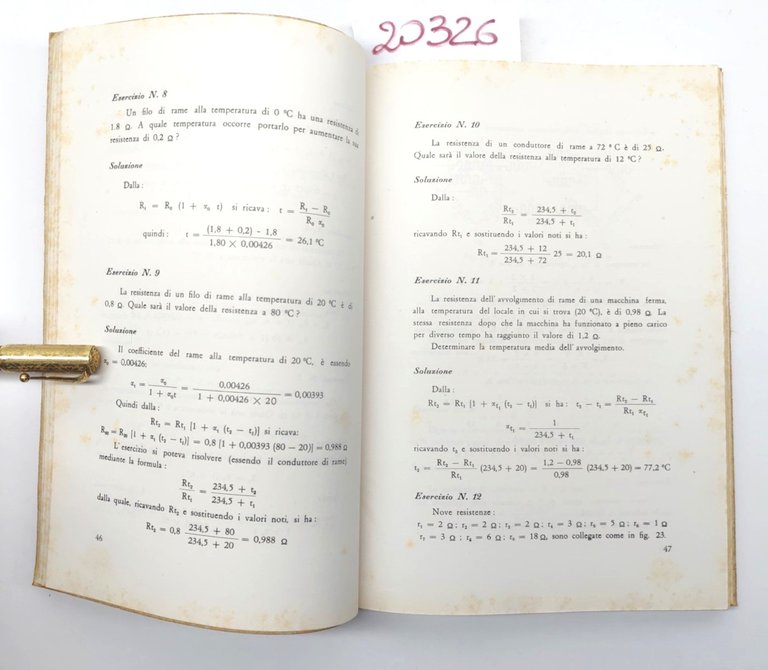 20326
Esercizio N. 8
Un filo di rame alla temperatura di 0 °C ha una resistenza di
1.8 Ω. A quale temperatura occorre portarlo per aumentare la sua
resistenza di 0,2 Ω ?
Soluzione
Dalla :
Rt = R0 (1 + α0 t) si ricava : t = (Rt − R0) / (R0 α0)
quindi : t = ((1,8 + 0,2) - 1,8) / (1,80 × 0,00426) = 26,1 °C
Esercizio N. 9
La resistenza di un filo di rame alla temperatura di 20 °C è di
0,8 Ω. Quale sarà il valore della resistenza a 80 °C ?
Soluzione
Il coefficiente del rame alla temperatura di 20 °C, è essendo
α0 = 0,00426:
αt = α0 / (1 + α0t) = 0,00426 / (1 + 0,00426 × 20) = 0,00393
Quindi dalla :
Rt2 = Rt1 [1 + αt (t2 − t1)] si ricava:
R80 = R20 [1 + αt (t2 − t1)] = 0,8 [1 + 0,00393 (80 − 20)] = 0,988 Ω
L'esercizio si poteva risolvere (essendo il conduttore di rame)
mediante la formula :
Rt2 / Rt1 = (234,5 + t2) / (234,5 + t1)
dalla quale, ricavando Rt2 e sostituendo i valori noti, si ha :
Rt2 = 0,8 (234,5 + 80) / (234,5 + 20) = 0,988 Ω
46
Esercizio N. 10
La resistenza di un conduttore di rame a 72 ° C è di 25 Ω
Quale sarà il valore della resistenza alla temperatura di 12 °C ?
Soluzione
Dalla :
Rt2 / Rt1 = (234,5 + t2) / (234,5 + t1)
ricavando Rt1 e sostituendo i valori noti si ha :
Rt1 = (234,5 + 12) / (234,5 + 72) 25 = 20,1 Ω
Esercizio N. 11
La resistenza dell' avvolgimento di rame di una macchina ferma,
alla temperatura del locale in cui si trova (20 °C), è di 0,98 Ω. La
stessa resistenza dopo che la macchina ha funzionato a pieno carico
per diverso tempo ha raggiunto il valore di 1,2 Ω.
Determinare la temperatura media dell'avvolgimento.
Soluzione
Dalla :
Rt2 = Rt1 [1 + αt1 (t2 − t1)] si ha : t2 − t1 = (Rt2 − Rt1) / (Rt1 αt1)
αt1 = 1 / (234,5 + t1)
ricavando t2 e sostituendo i valori noti si ha :
t2 = (Rt2 − Rt1) / Rt1 (234,5 + 20) = (1,2 − 0,98) / 0,98 (234,5 + 20) = 77,2 °C
Esercizio N. 12
Nove resistenze :
r1 = 2 Ω ; r2 = 2 Ω ; r3 = 2 Ω ; r4 = 3 Ω ; r5 = 5 Ω ; r6 = 1 Ω
r7 = 3 Ω ; r8 = 6 Ω ; r9 = 18 Ω, sono collegate come in fig. 23.
47